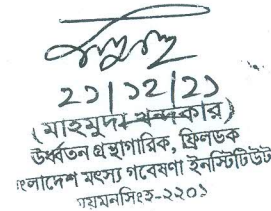 ২১/১২/২১
(মাহমুদা খন্দকার)
উর্ধ্বতন গ্রন্থাগারিক, ফ্রিলডক
বাংলাদেশ মৎস্য গবেষণা ইনস্টিটিউট
ময়মনসিংহ-২২০১